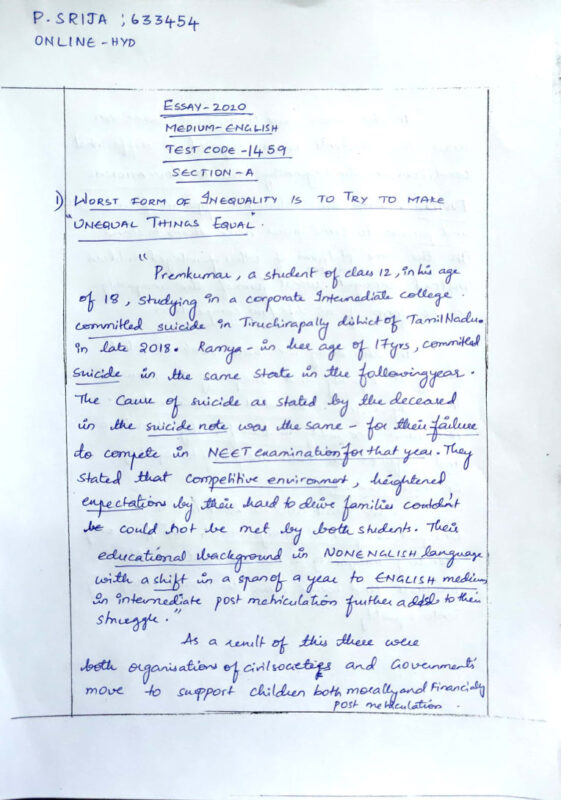 P. SRIJA ; 633454
ONLINE - HYD
ESSAY - 2020
MEDIUM - ENGLISH
TEST CODE - 1459
SECTION - A
1) WORST FORM OF INEQUALITY IS TO TRY TO MAKE
"UNEQUAL THINGS EQUAL".
"Premkumar, a student of class 12, in his age
of 18, studying in a corporate Intermediate college
committed suicide in Tiruchirapally district of Tamil Nadu.
in late 2018. Ramya - in her age of 17yrs, committed
suicide in the same state in the following year.
The cause of suicide as stated by the deceased
in the suicide note was the same - for their failure
to compete in NEET examination for that year. They
stated that competitive environment, heightened
expectations by their hard to drive families couldn't
be could not be met by both students. Their
educational background in NON ENGLISH language
with a shift in a span of a year to ENGLISH medium
in intermediate post matriculation further added to their
struggle."
As a result of this there were
both organisations of civil societies and Governments'
move to support children both morally and Financially
post matriculation.